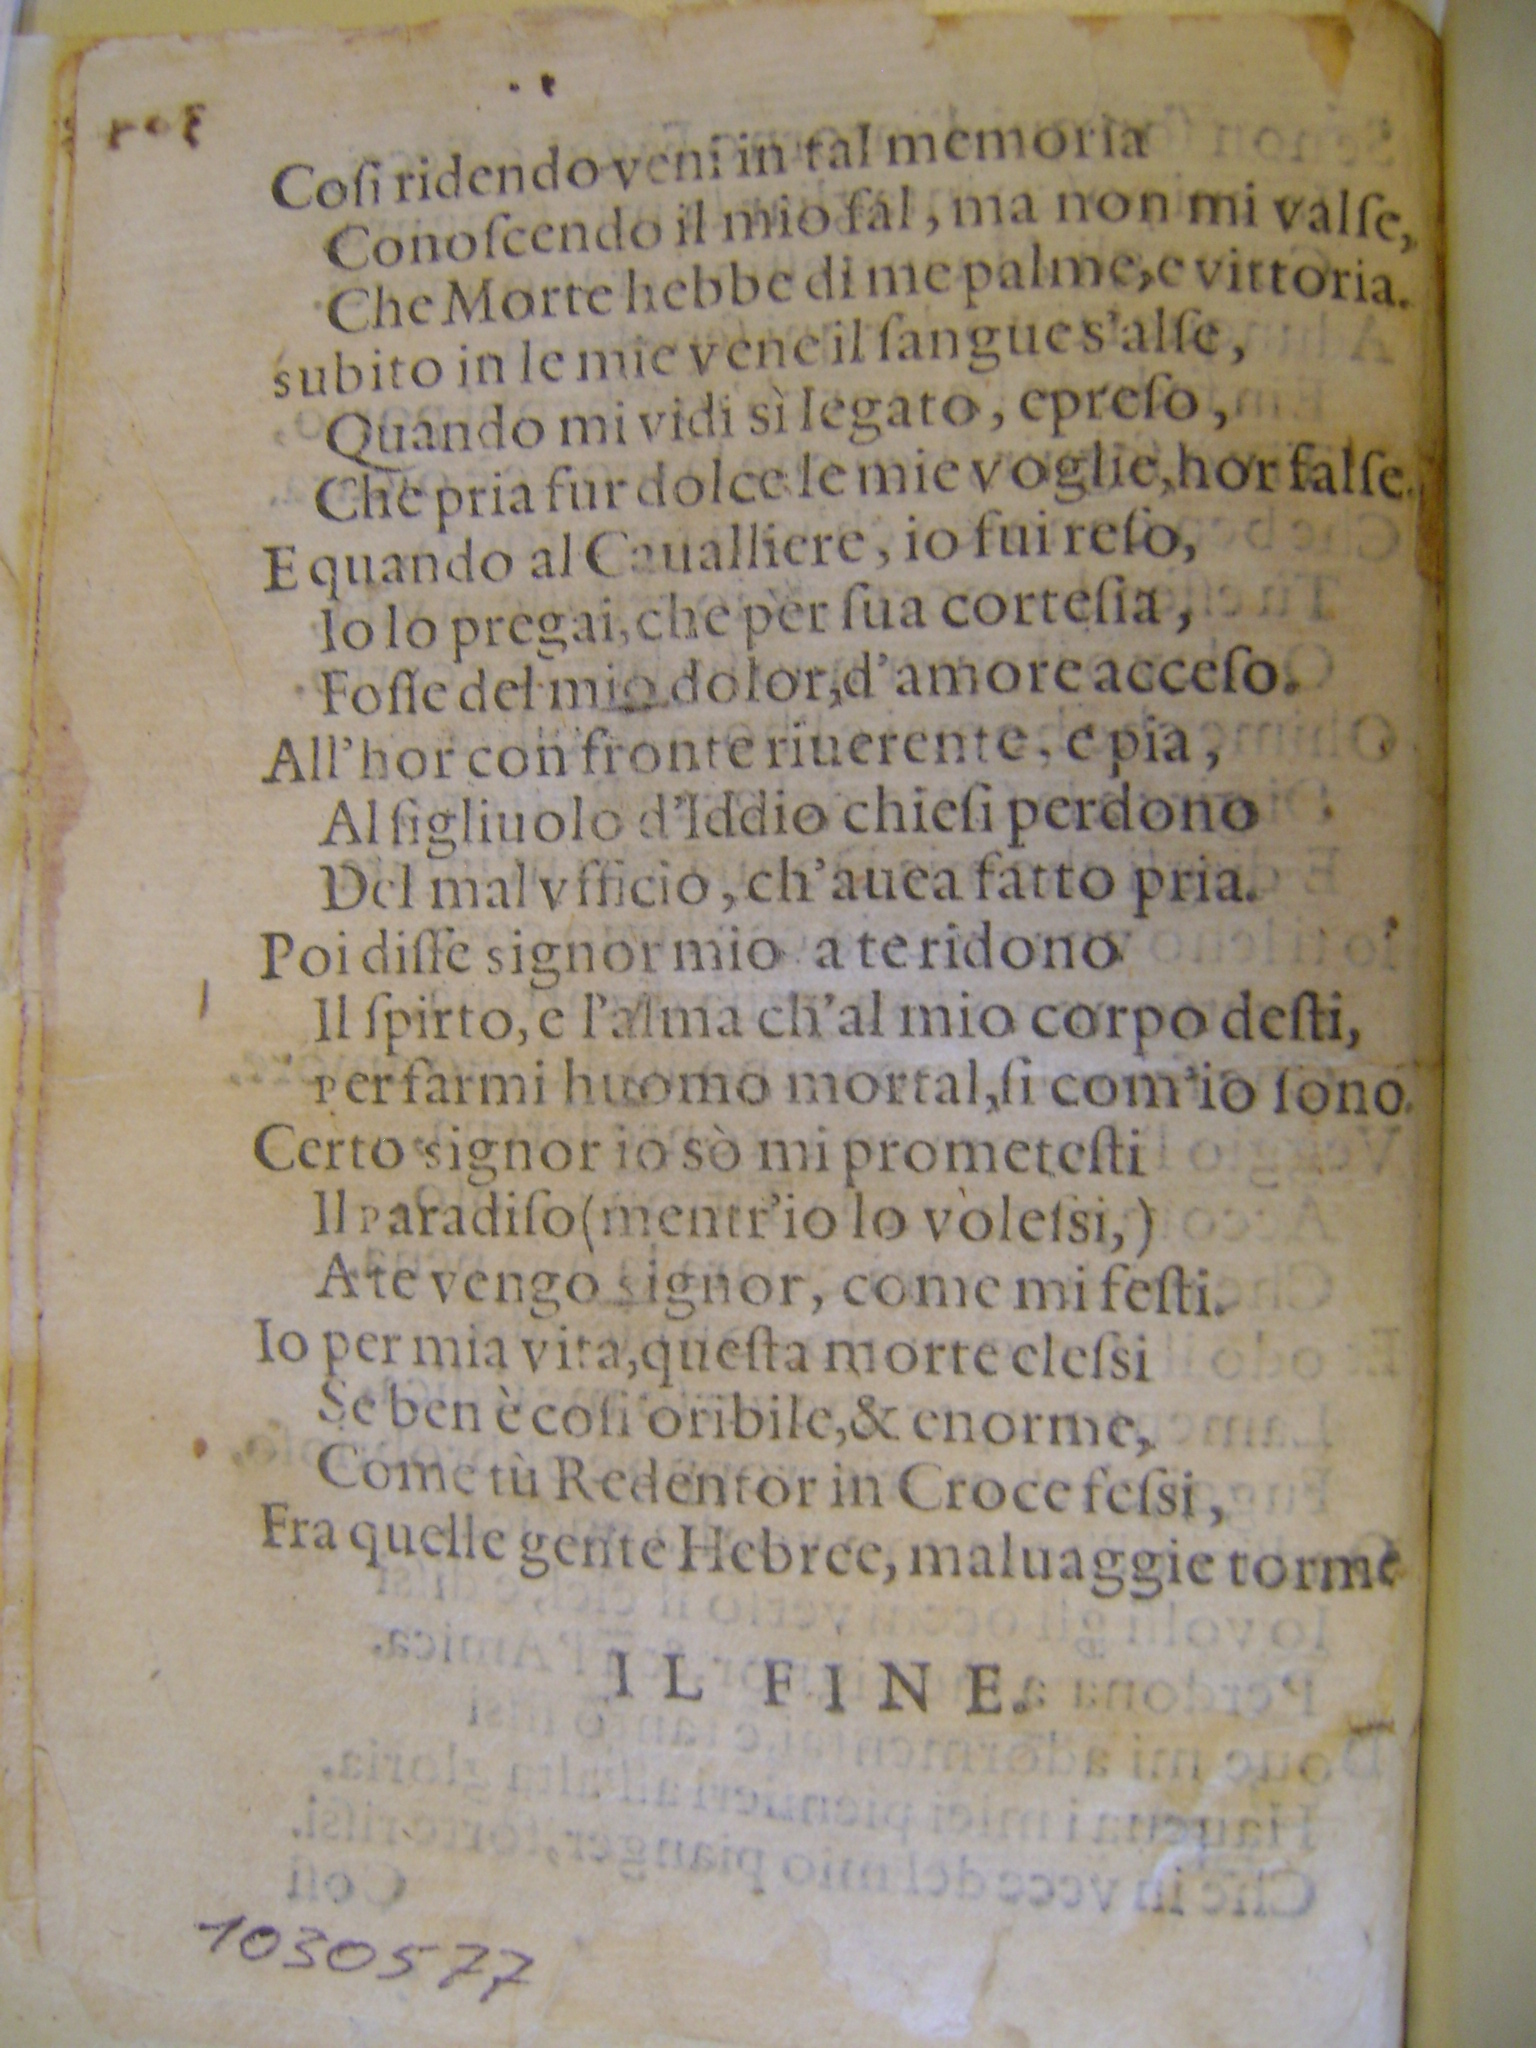 Coſi ridendo veni in tal memoria
Conoſcendo il mio fal, ma non mi valſe,
Che Morte hebbe di me palme, e vittoria.
subito in le mie vene il ſangue s'alſe,
Quando mi vidi sì legato, epreſo,
Che pria fur dolce le mie voglie, hor falſe.
E quando al Caualliere, io fui reſo,
Io lo pregai, che per ſua corteſia,
Foſſe del mio dolor, d'amore acceſo.
All'hor con fronte riuerente, e pia,
Al figliuolo d'Iddio chieſi perdono
Del mal vfficio, ch'auea fatto pria.
Poi diſſe signor mio a te ridono
Il ſpirto, e l'alma ch'al mio corpo deſti,
per farmi huomo mortal, ſi com'io ſono.
Certo signor io sò mi prometeſti
Il paradiſo (mentr'io lo voleſsi,)
A te vengo signor, come mi feſti.
Io per mia vita, queſta morte eleſsi
Se ben è coſi oribile, & enorme,
Come tù Redentor in Croce feſsi,
Fra quelle gente Hebree, maluaggie torme
IL FINE.
1030577